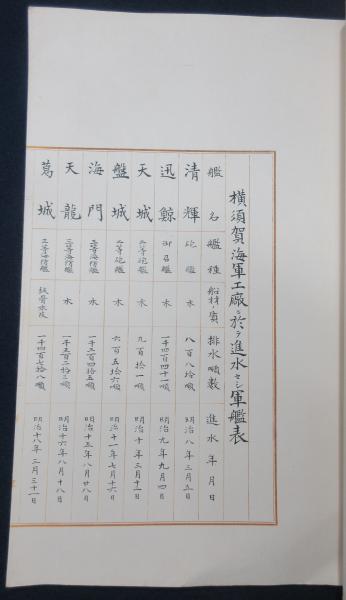 横須賀海軍工廠ニ於テ進水セシ軍艦表
艦名 艦種 船材ノ質 排水噸数 進水年月日
清輝 砲艦 木 八百九十八噸 明治八年三月五日
迅鯨 御召艦 木 一千四百四十一噸 明治九年九月四日
天城 三等砲艦 木 九百十一噸 明治十年三月十三日
盤城 二等砲艦 木 六百五拾六噸 明治十一年七月十六日
海門 三等海防艦 木 一千三百四拾五噸 明治十五年八月廿八日
天龍 三等海防艦 木 一千五百三拾三噸 明治十六年八月十八日
葛城 三等海防艦 鉄骨木皮 一千四百七拾八噸 明治十八年三月三十一日